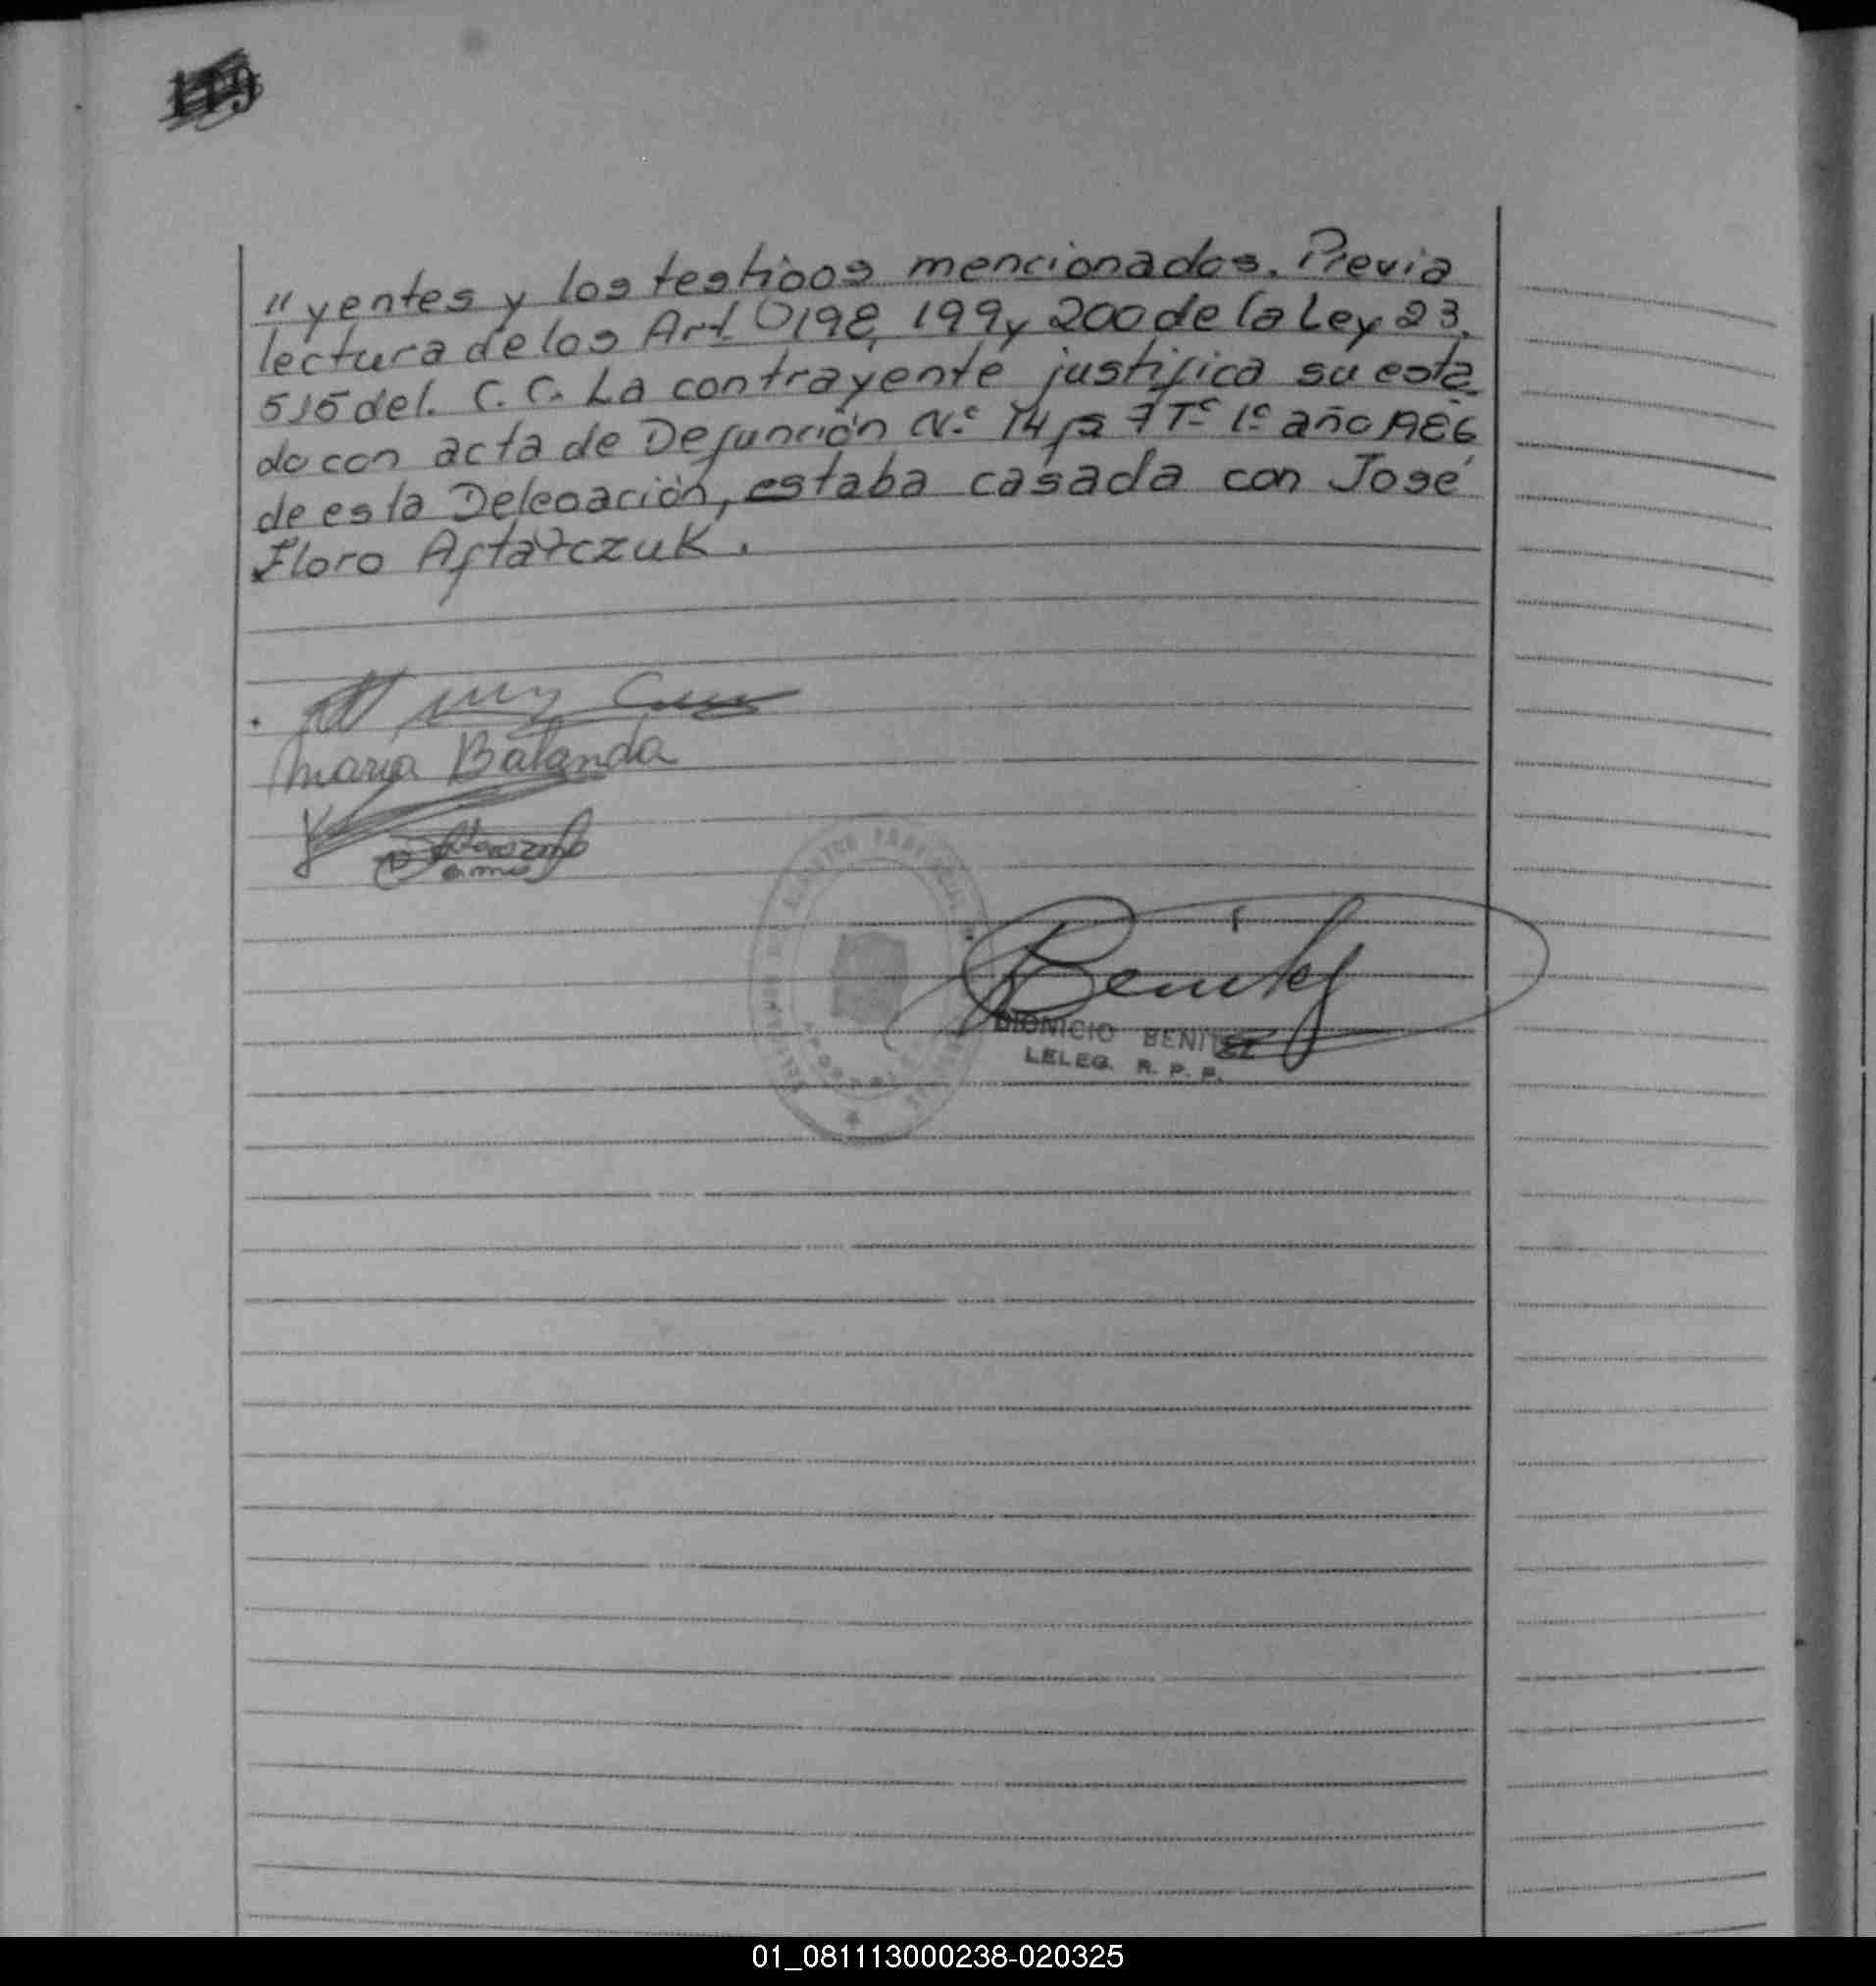 "yentes y los testigos mencionados. Previa
lectura de los Art 198, 199 y 200 de la Ley 23.
515 del. C. C. La contrayente justifica su esta
do con acta de Defunción N.º 14 Tº 1º año 1986
de esta Delegación, estaba casada con José
Floro
Maria Balanda
Benitez
DIONICIO BENITEZ
LELEG. R. P. P.
01_081113000238-020325